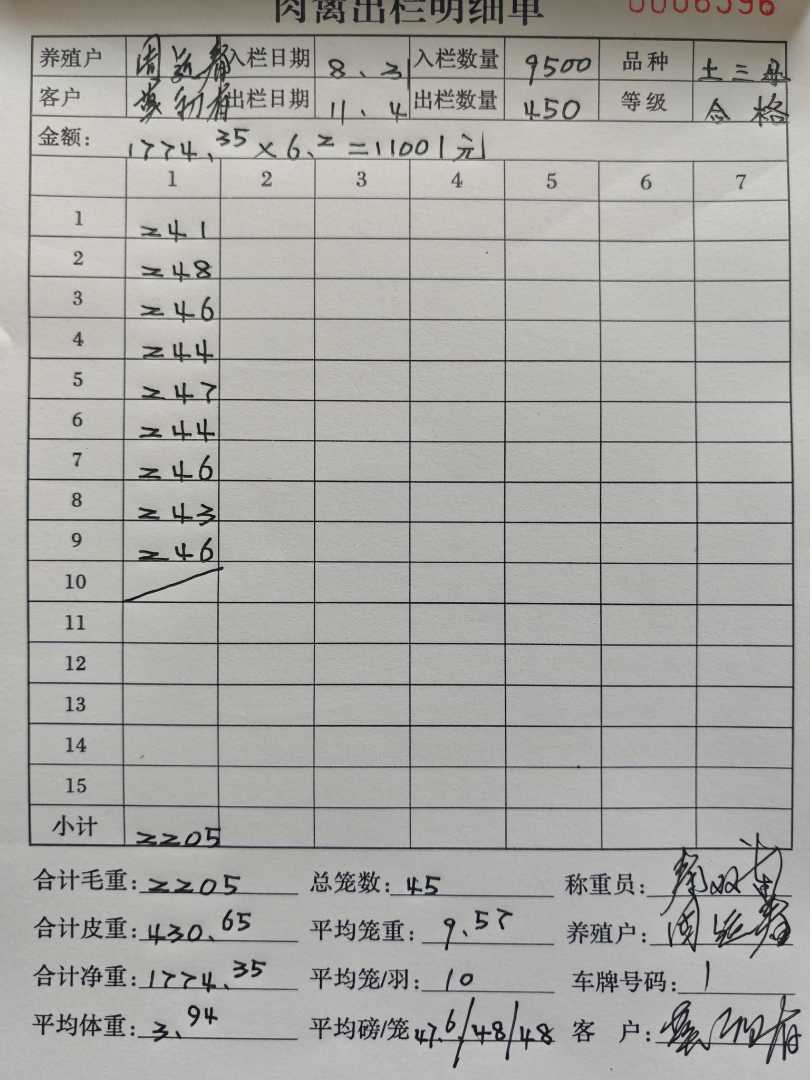 肉禽出栏明细单 0006596
养殖户 周 入栏日期 8.31 入栏数量 9500 品种 土三
客户 出栏日期 11.4 出栏数量 450 等级 合格
金额: 1774.35×6.2=11001元
1 2 3 4 5 6 7
1 241
2 248
3 246
4 244
5 247
6 244
7 246
8 243
9 246
10
11
12
13
14
15
小计 2205
合计毛重: 2205 总笼数: 45 称重员:
合计皮重: 430.65 平均笼重: 9.57 养殖户: 周
合计净重: 1774.35 平均笼/羽: 10 车牌号码: 1
平均体重: 3.94 平均磅/笼 47.6/48/48 客 户: